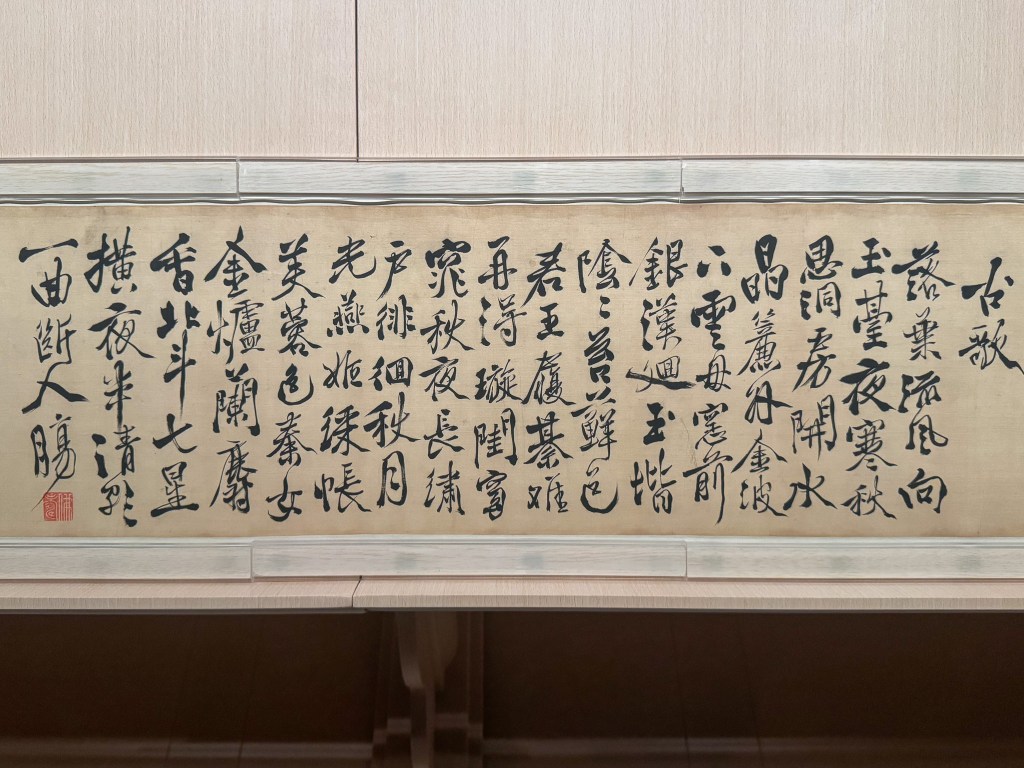 古歌
落葉流風向
玉臺夜寒秋
思洞房開水
晶簾外金波
下雲母窓前
銀漢迴玉堦
陰〻苔蘚色
君王履綦難
再得璇閨窈
窕秋夜長繡
戶徘徊秋月
光燕姬綵帳
芙蓉色秦女
金爐蘭麝
香北斗七星
橫夜半清歌
一曲斷人腸